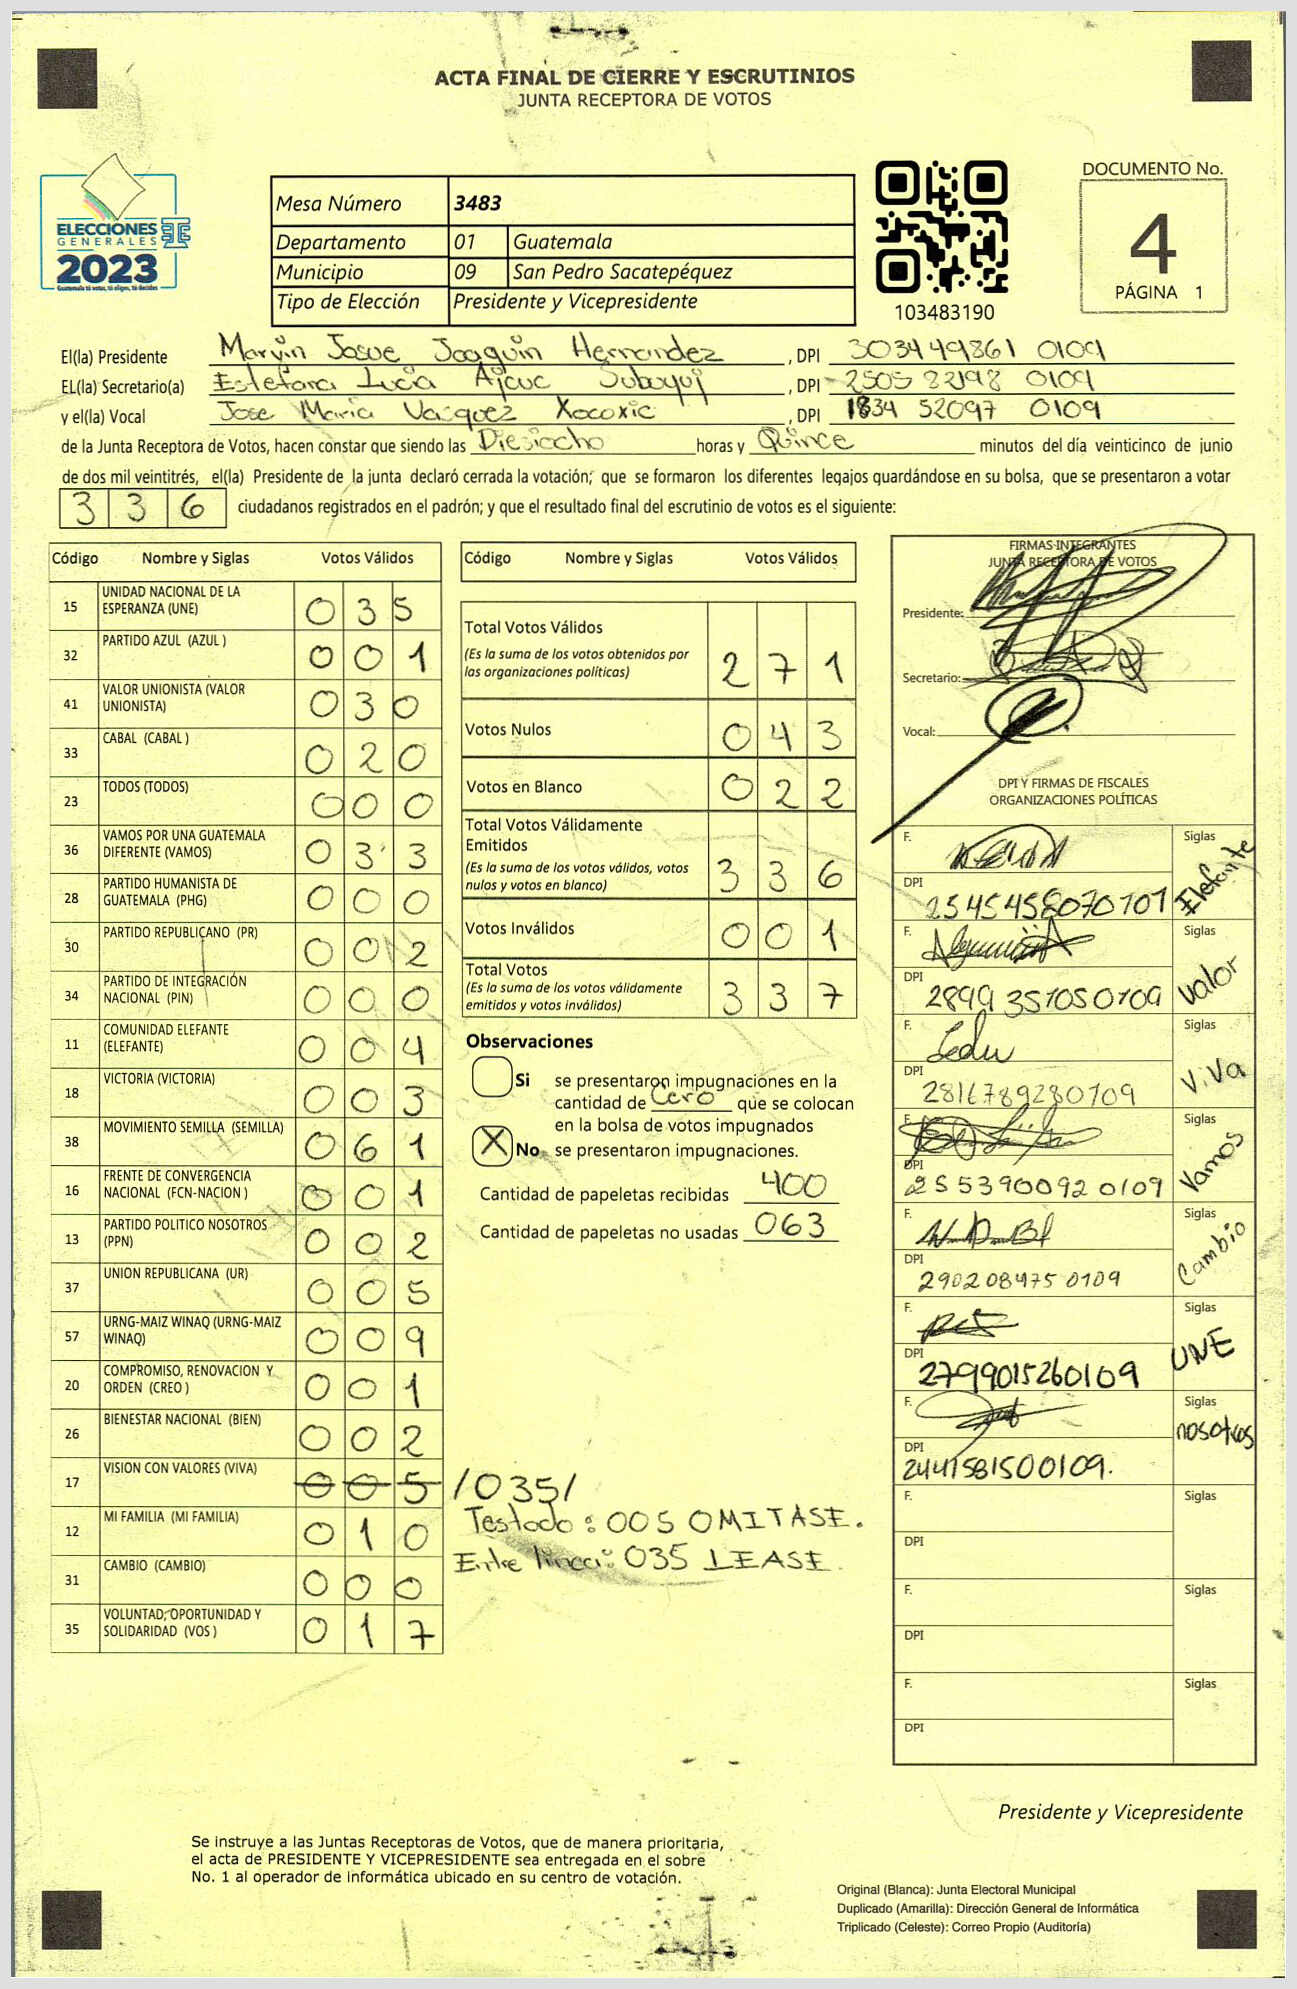 ACTA FINAL DE CIERRE Y ESCRUTINIOS
JUNTA RECEPTORA DE VOTOS
ELECCIONES
GENERALES
2023
Guatemala tú votas, tú eliges, tú decides
Mesa Número 3483
Departamento 01 Guatemala
Municipio 09 San Pedro Sacatepéquez
Tipo de Elección Presidente y Vicepresidente
103483190
DOCUMENTO No.
4
PÁGINA 1
El(la) Presidente Marvin Josue Joaquin Hernandez, DPI 303449861 0109
EL(la) Secretario(a) Estefana Lucia Ajcuc Subuyuj, DPI 2505 82198 0109
y el(la) Vocal Jose Maria Vasquez Xocoxic, DPI 1834 52097 0109
de la Junta Receptora de Votos, hacen constar que siendo las Diesiocho horas y Quince minutos del día veinticinco de junio
de dos mil veintitrés, el(la) Presidente de la junta declaró cerrada la votación; que se formaron los diferentes legajos guardándose en su bolsa, que se presentaron a votar
336 ciudadanos registrados en el padrón; y que el resultado final del escrutinio de votos es el siguiente:
Código Nombre y Siglas Votos Válidos
15 UNIDAD NACIONAL DE LA ESPERANZA (UNE) 035
32 PARTIDO AZUL (AZUL ) 001
41 VALOR UNIONISTA (VALOR UNIONISTA) 030
33 CABAL (CABAL ) 020
23 TODOS (TODOS) 000
36 VAMOS POR UNA GUATEMALA DIFERENTE (VAMOS) 033
28 PARTIDO HUMANISTA DE GUATEMALA (PHG) 000
30 PARTIDO REPUBLICANO (PR) 002
34 PARTIDO DE INTEGRACIÓN NACIONAL (PIN) 000
11 COMUNIDAD ELEFANTE (ELEFANTE) 004
18 VICTORIA (VICTORIA) 003
38 MOVIMIENTO SEMILLA (SEMILLA) 061
16 FRENTE DE CONVERGENCIA NACIONAL (FCN-NACION ) 001
13 PARTIDO POLITICO NOSOTROS (PPN) 002
37 UNION REPUBLICANA (UR) 005
57 URNG-MAIZ WINAQ (URNG-MAIZ WINAQ) 009
20 COMPROMISO, RENOVACION Y ORDEN (CREO ) 001
26 BIENESTAR NACIONAL (BIEN) 002
17 VISION CON VALORES (VIVA) 005 /035/
Testado: 005 OMITASE.
12 MI FAMILIA (MI FAMILIA) 010
Entre linea: 035 LEASE.
31 CAMBIO (CAMBIO) 000
35 VOLUNTAD, OPORTUNIDAD Y SOLIDARIDAD (VOS ) 017
Código Nombre y Siglas Votos Válidos
Total Votos Válidos
(Es la suma de los votos obtenidos por las organizaciones políticas) 271
Votos Nulos 043
Votos en Blanco 022
Total Votos Válidamente Emitidos
(Es la suma de los votos válidos, votos nulos y votos en blanco) 336
Votos Inválidos 001
Total Votos
(Es la suma de los votos válidamente emitidos y votos inválidos) 337
Observaciones
Si se presentaron impugnaciones en la
cantidad de Cero que se colocan
en la bolsa de votos impugnados
X No se presentaron impugnaciones.
Cantidad de papeletas recibidas 400
Cantidad de papeletas no usadas 063
FIRMAS INTEGRANTES
JUNTA RECEPTORA DE VOTOS
Presidente:
Secretario:
Vocal:
DPI Y FIRMAS DE FISCALES
ORGANIZACIONES POLÍTICAS
F. Siglas Elefante
DPI 2545458070101
F. Siglas Valor
DPI 2899 351050109
F. Siglas ViVa
DPI 2816789230109
F. Siglas Vamos
DPI 255390092 0109
F. Siglas Cambio
DPI 290208475 0109
F. Siglas UNE
DPI 2799015260109
F. Siglas nosotros
DPI 2441581500109.
F. Siglas
DPI
F. Siglas
DPI
F. Siglas
DPI
Presidente y Vicepresidente
Se instruye a las Juntas Receptoras de Votos, que de manera prioritaria,
el acta de PRESIDENTE Y VICEPRESIDENTE sea entregada en el sobre
No. 1 al operador de informática ubicado en su centro de votación.
Original (Blanca): Junta Electoral Municipal
Duplicado (Amarilla): Dirección General de Informática
Triplicado (Celeste): Correo Propio (Auditoría)